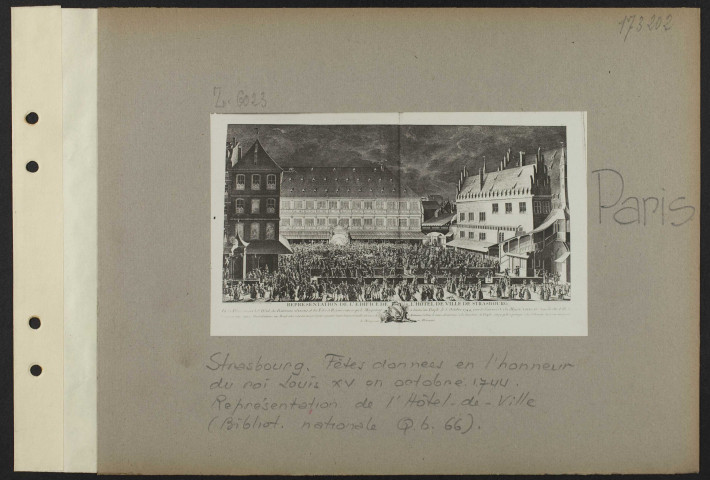 173202
Z. 6023
Paris
REPRÉSENTATION DE L'ÉDIFICE DE L'HÔTEL DE VILLE DE STRASBOURG
Strasbourg. Fêtes données en l'honneur
du roi Louis XV en octobre 1744.
Représentation de l'Hôtel-de-Ville
(Bibliot. nationale Q.b. 66).